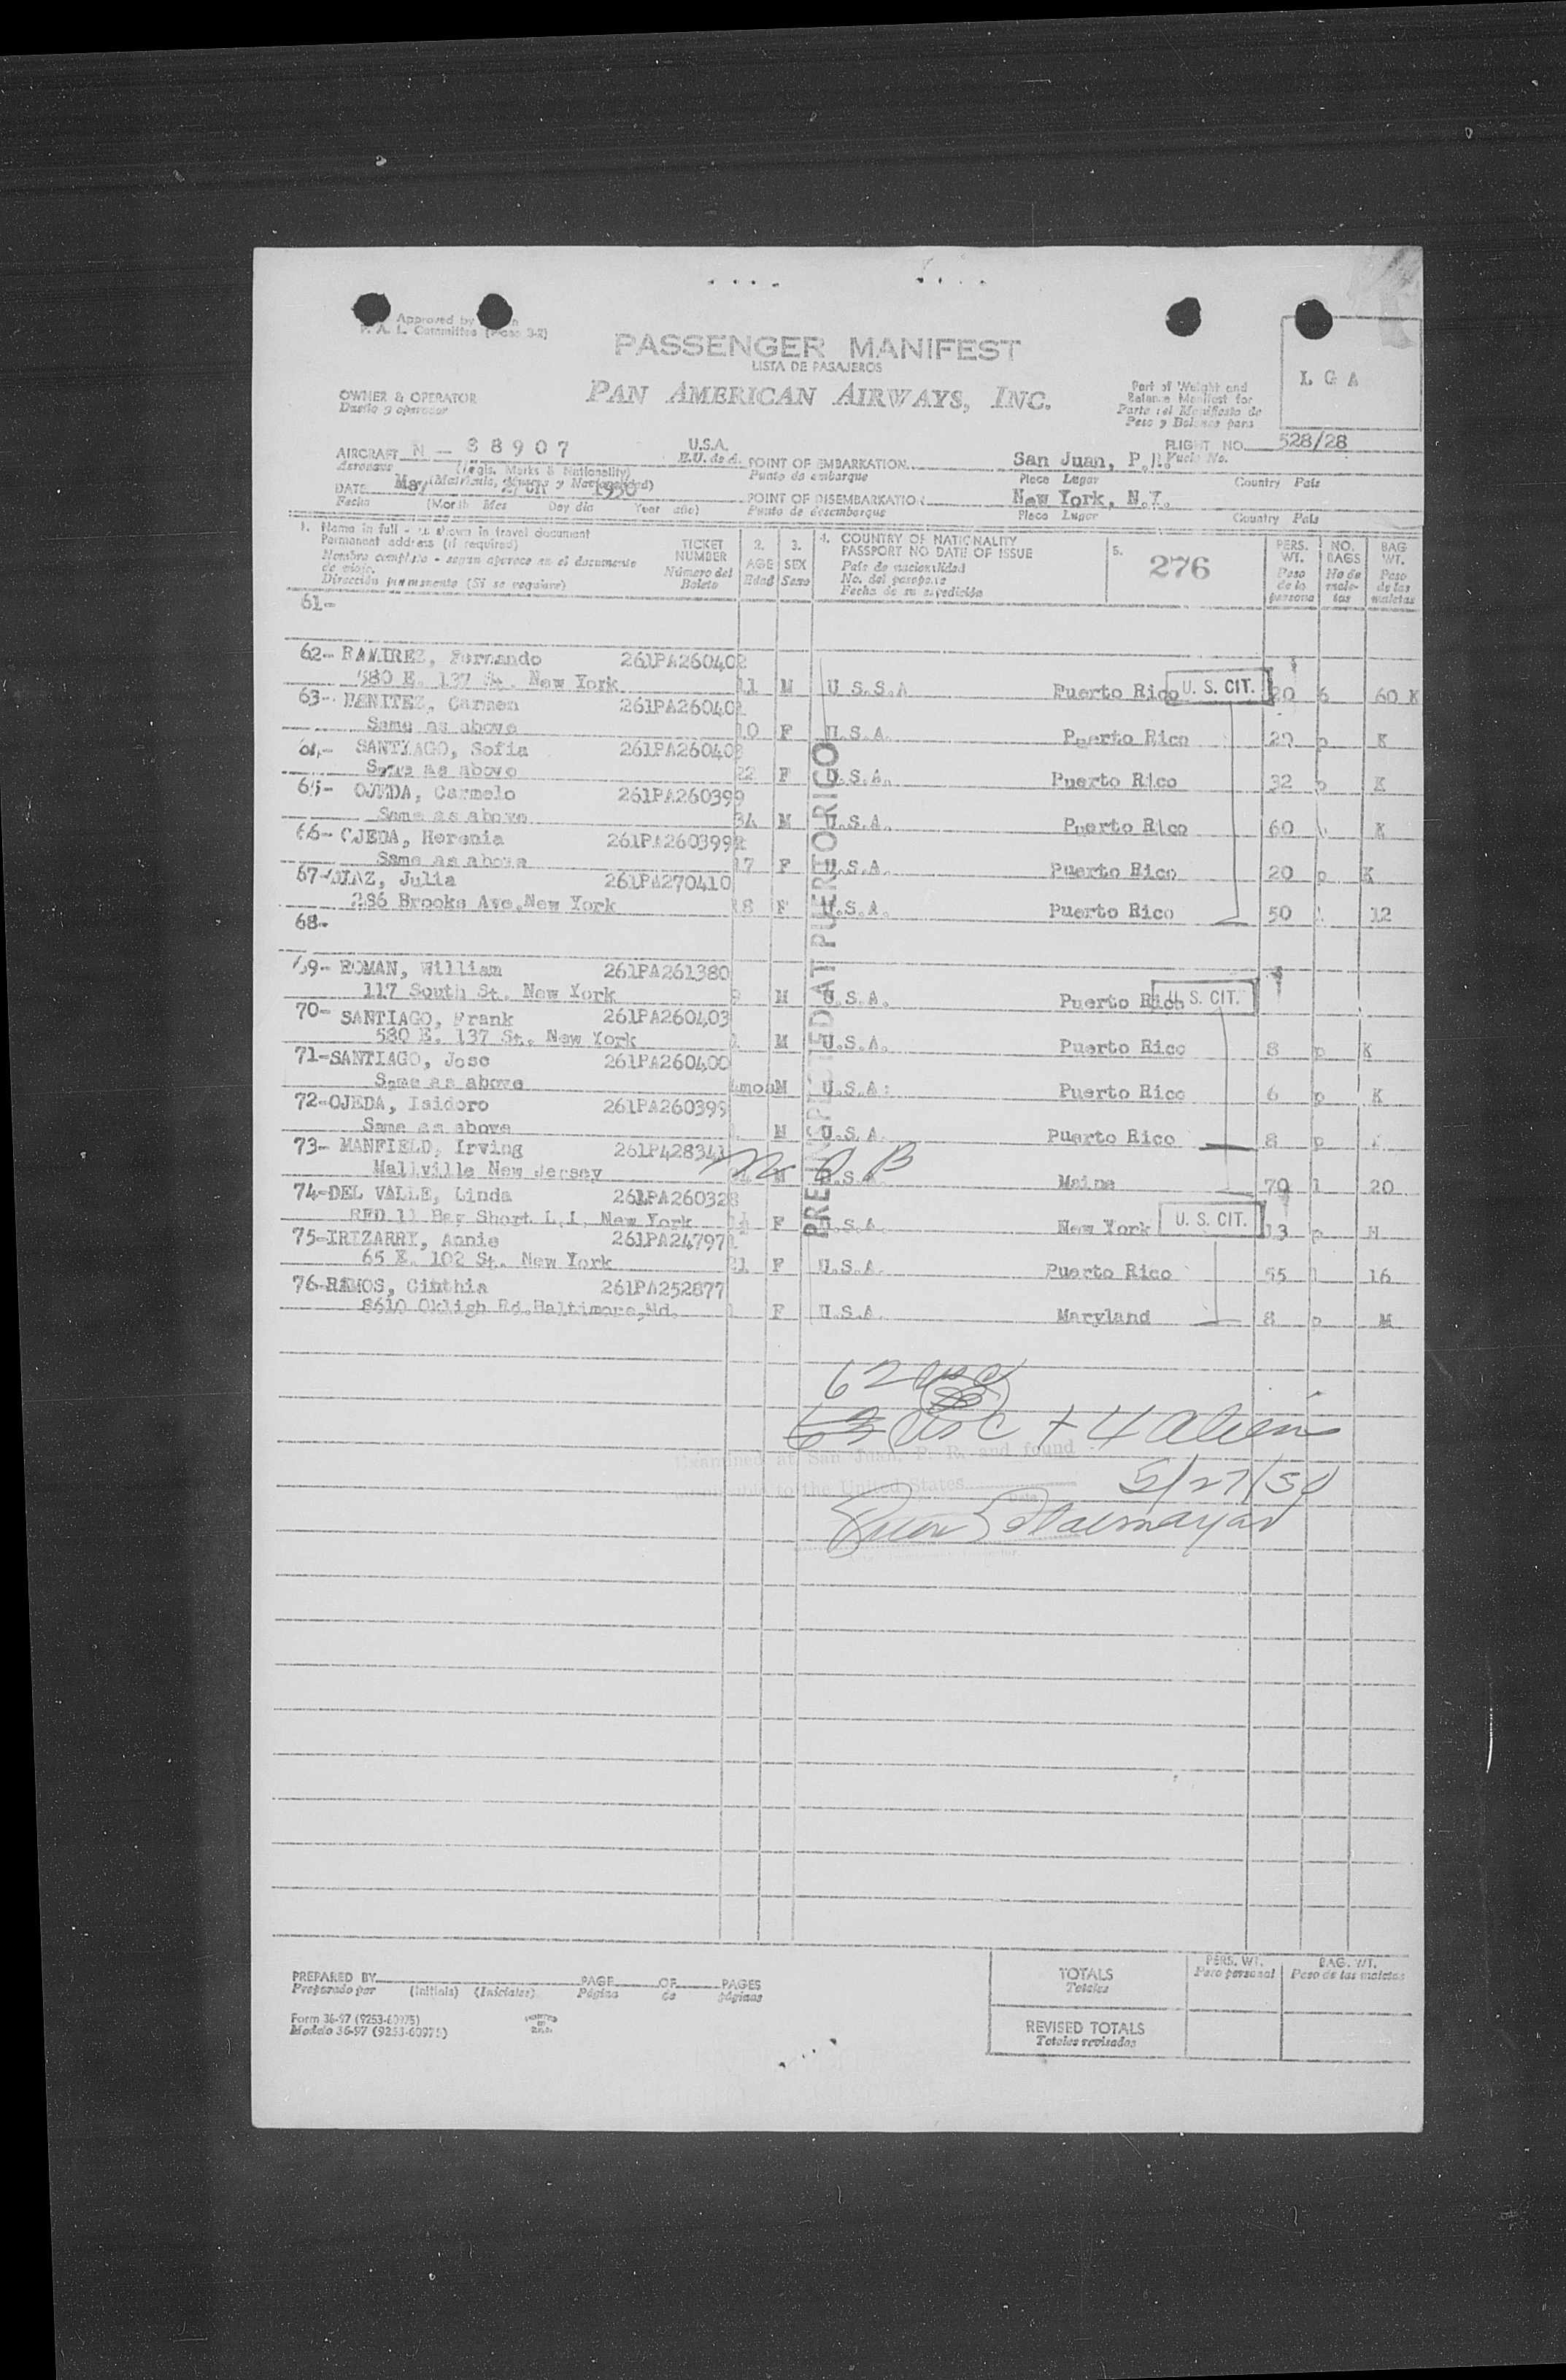 Approved by
F. A. L. Committee
PASSENGER MANIFEST
LISTA DE PASAJEROS
PAN AMERICAN AIRWAYS, INC.
OWNER & OPERATOR
Dueño y operador
Part of Weight and
Balance Manifest for
Parte del Manifiesto de
Peso y Balance para
L G A
AIRCRAFT N - 88907 U.S.A.
Aeronave (Regis. Marks & Nationality) E.U. de A.
(Matrícula, número y Nacionalidad)
FLIGHT NO. 528/28
Vuelo No.
POINT OF EMBARKATION San Juan, P.R.
Punto de embarque Place Lugar Country País
DATE May 27th 1950
Fecha (Month Mes Day día Year año)
POINT OF DISEMBARKATION New York, N.Y.
Punto de desembarque Place Lugar Country País
1. Name in full - as shown in travel document
Permanent address (if required)
Nombre completo - según aparece en el documento
de viaje.
Dirección permanente (Si se requiere)
TICKET
NUMBER
Número del
Boleto
2.
AGE
Edad
3.
SEX
Sexo
4. COUNTRY OF NATIONALITY
PASSPORT NO DATE OF ISSUE
País de nacionalidad
No. del pasaporte
Fecha de su expedición
5. 276
PERS.
WT.
Peso
de la
persona
NO.
BAGS
No de
male-
tas
BAG
WT.
Peso
de las
maletas
61-
62- RAMIREZ, Fernando 261PA260402
580 E. 137 St. New York 11 M U S.S.A Puerto Rico U. S. CIT. 20 6 60 K
63- BENITEZ, Carmen 261PA260401
Same as above 10 F U.S.A. Puerto Rico 20 K
64- SANTYAGO, Sofia 261PA260402
Same as above 22 F U.S.A. Puerto Rico 32 K
65- OJEDA, Carmelo 261PA260399
Same as above 34 M U.S.A. Puerto Rico 60 K
66- OJEDA, Herenia 261PA260399
Same as above 17 F U.S.A. Puerto Rico 20 K
67- DIAZ, Julia 261PA270410
286 Brooks Ave. New York 18 F U.S.A. Puerto Rico 50 12
68-
69- ROMAN, William 261PA261380
117 South St. New York M U.S.A. Puerto Rico U. S. CIT.
70- SANTIAGO, Frank 261PA260403
580 E. 137 St. New York M U.S.A. Puerto Rico 8 K
71-SANTIAGO, Jose 261PA260400
Same as above mos M U.S.A. Puerto Rico 6 K
72-OJEDA, Isidoro 261PA260399
Same as above M U.S.A. Puerto Rico 8
73- MANFIELD, Irving 261P428341
Mallville New Jersey M U.S.A. Maine 70 1 20
74-DEL VALLE, Linda 261PA260328
RFD 11 Bay Short L.I. New York F U.S.A. New York U. S. CIT. 13
75-IRIZARRY, Annie 261PA247971
65 E. 102 St. New York 21 F U.S.A. Puerto Rico 55 1 16
76-RAMOS, Cinthia 261PA252877
8610 Okligh Rd. Baltimore, Md. 1 F U.S.A. Maryland 8 M
PRE INSPECTED AT PUERTO RICO
62 usc
63 usc + 4 aliens
Examined at San Juan, P. R. and found
to the United States
5/27/50
PREPARED BY
Preparado por (Initials) (Iniciales)
PAGE OF PAGES
Página de páginas
Form 36-97 (9253-60975)
Modelo 36-97 (9253-60975)
PRINTED
IN
U.S.A.
PERS. WT.
Peso personal
BAG. WT.
Peso de las maletas
TOTALS
Totales
REVISED TOTALS
Totales revisados